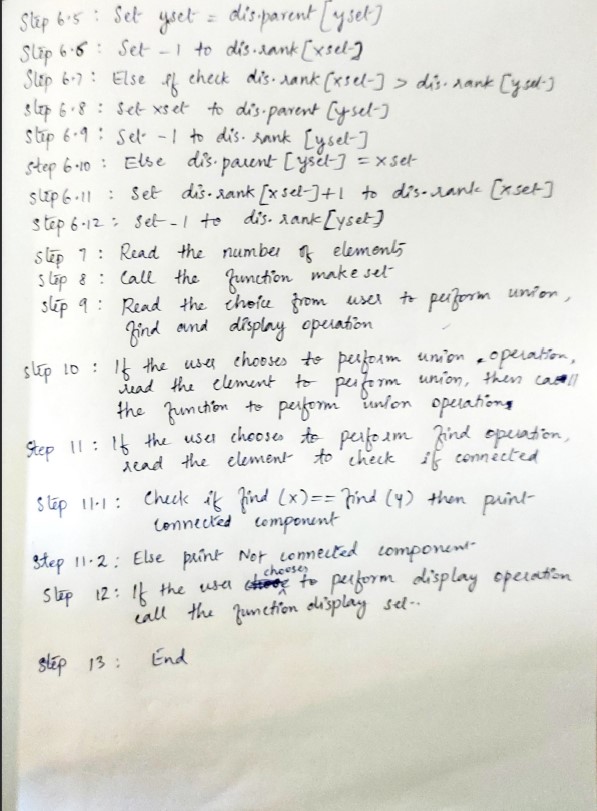 Step 6.5 : Set yset = dis.parent[yset]
Step 6.6 : Set -1 to dis.rank[xset]
Step 6.7 : Else if check dis.rank[xset] > dis.rank[yset]
Step 6.8 : Set xset to dis.parent[yset]
Step 6.9 : Set -1 to dis.rank [yset]
Step 6.10 : Else dis.parent[yset] = xset
Step 6.11 : Set dis.rank[xset]+1 to dis.rank[xset]
Step 6.12 : Set -1 to dis.rank[yset]
Step 7 : Read the number of elements
Step 8 : Call the function make set
Step 9 : Read the choice from user to perform union,
find and display operation
Step 10 : If the user chooses to perform union operation,
read the element to perform union, then call
the function to perform union operation
Step 11 : If the user chooses to perform find operation,
read the element to check if connected
Step 11.1 : Check if find (x) == find (y) then print
connected component
Step 11.2 : Else print Not connected component
Step 12 : If the user chooses to perform display operation
call the function display set..
Step 13 : End